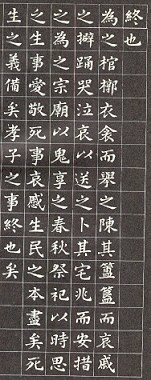 終也
為之棺槨衣衾而舉之陳其簠簋而哀慼
之擗踊哭泣哀以送之卜其宅兆而安措
之為之宗廟以鬼享之春秋祭祀以時思
之生事愛敬死事哀慼生民之本盡矣死
生之義備矣孝子之事終也矣